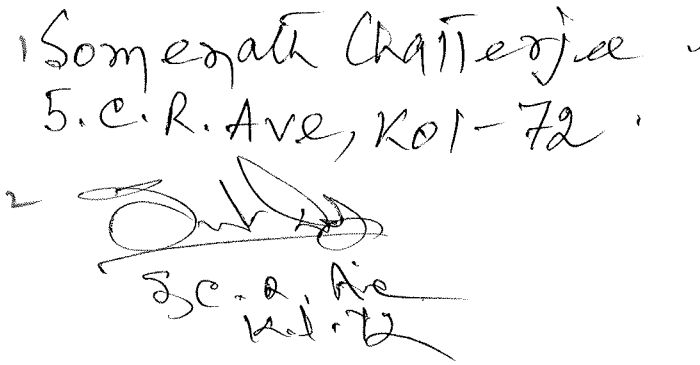 1 Somenath Chatterjee
5. C. R. Ave, Kol-72.
2
5, C. R. Ave
Kol-72